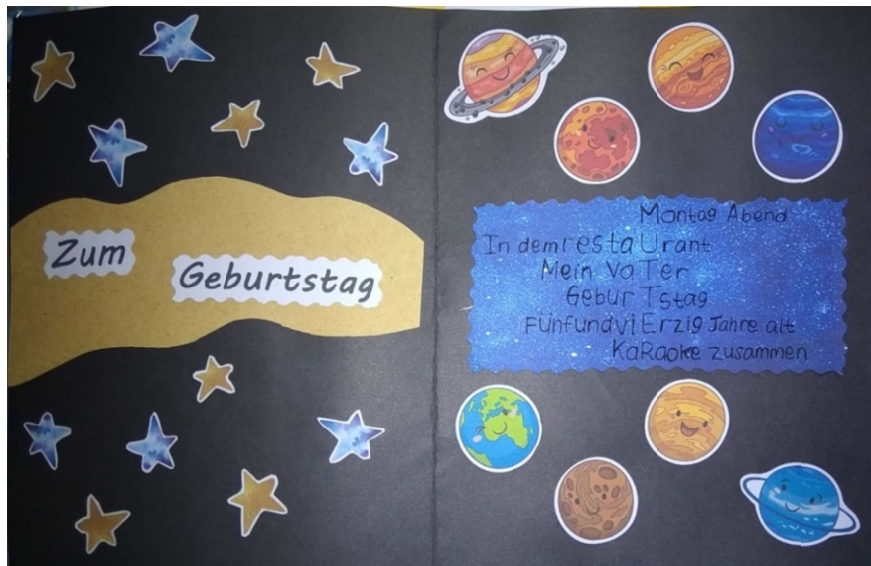 Zum
Geburtstag
Montag Abend
In dem restaUrant
Mein VaTer
GeburTstag
FünfundviErzig Jahre alt
KaRaoke zusammen